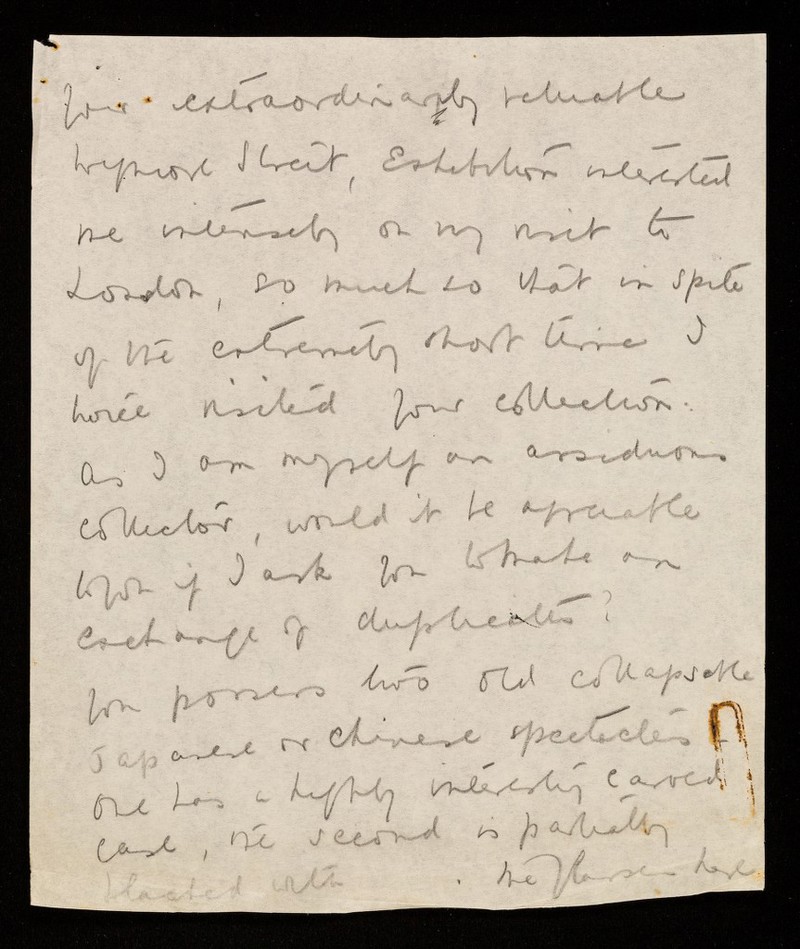 Your extraordinarily valuable
Wigmore Street, Exhibition interested
me intensely on my visit to
London, so much so that in spite
of the extremely short time I
twice visited your collection.
As I am myself an assiduous
collector, would it be agreeable
to you if I ask you to make an
exchange of duplicates?
You possess two old collapsable
Japanese or Chinese spectacles -
one has a highly interesting carved
case, the second is partially
with . the glasses here